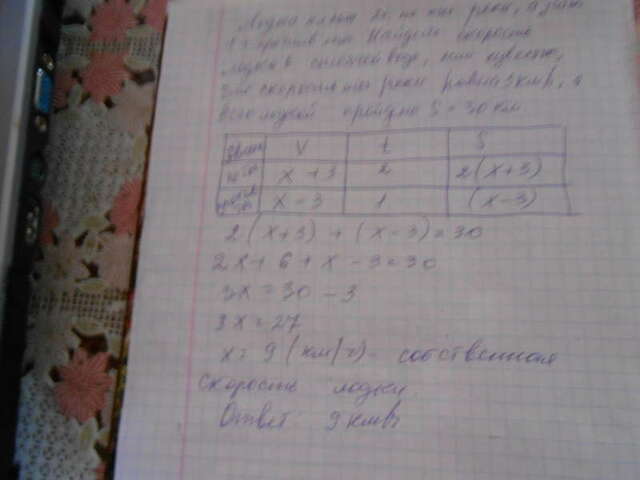 Лодка плыла 2ч. по теч реки, а затем
1ч против теч. Найдите скорость
лодки в стоячей воде, если известно,
что скорость теч реки равна 3 кмч, а
всего лодкой пройдено S = 30 км
движ V t S
по теч x + 3 2 2(x+3)
против теч x - 3 1 (x-3)
2(x+3) + (x-3) = 30
2x + 6 + x - 3 = 30
3x = 30 - 3
3x = 27
x = 9 (км/ч) - собственная
скорость лодки.
Ответ 9 кмч